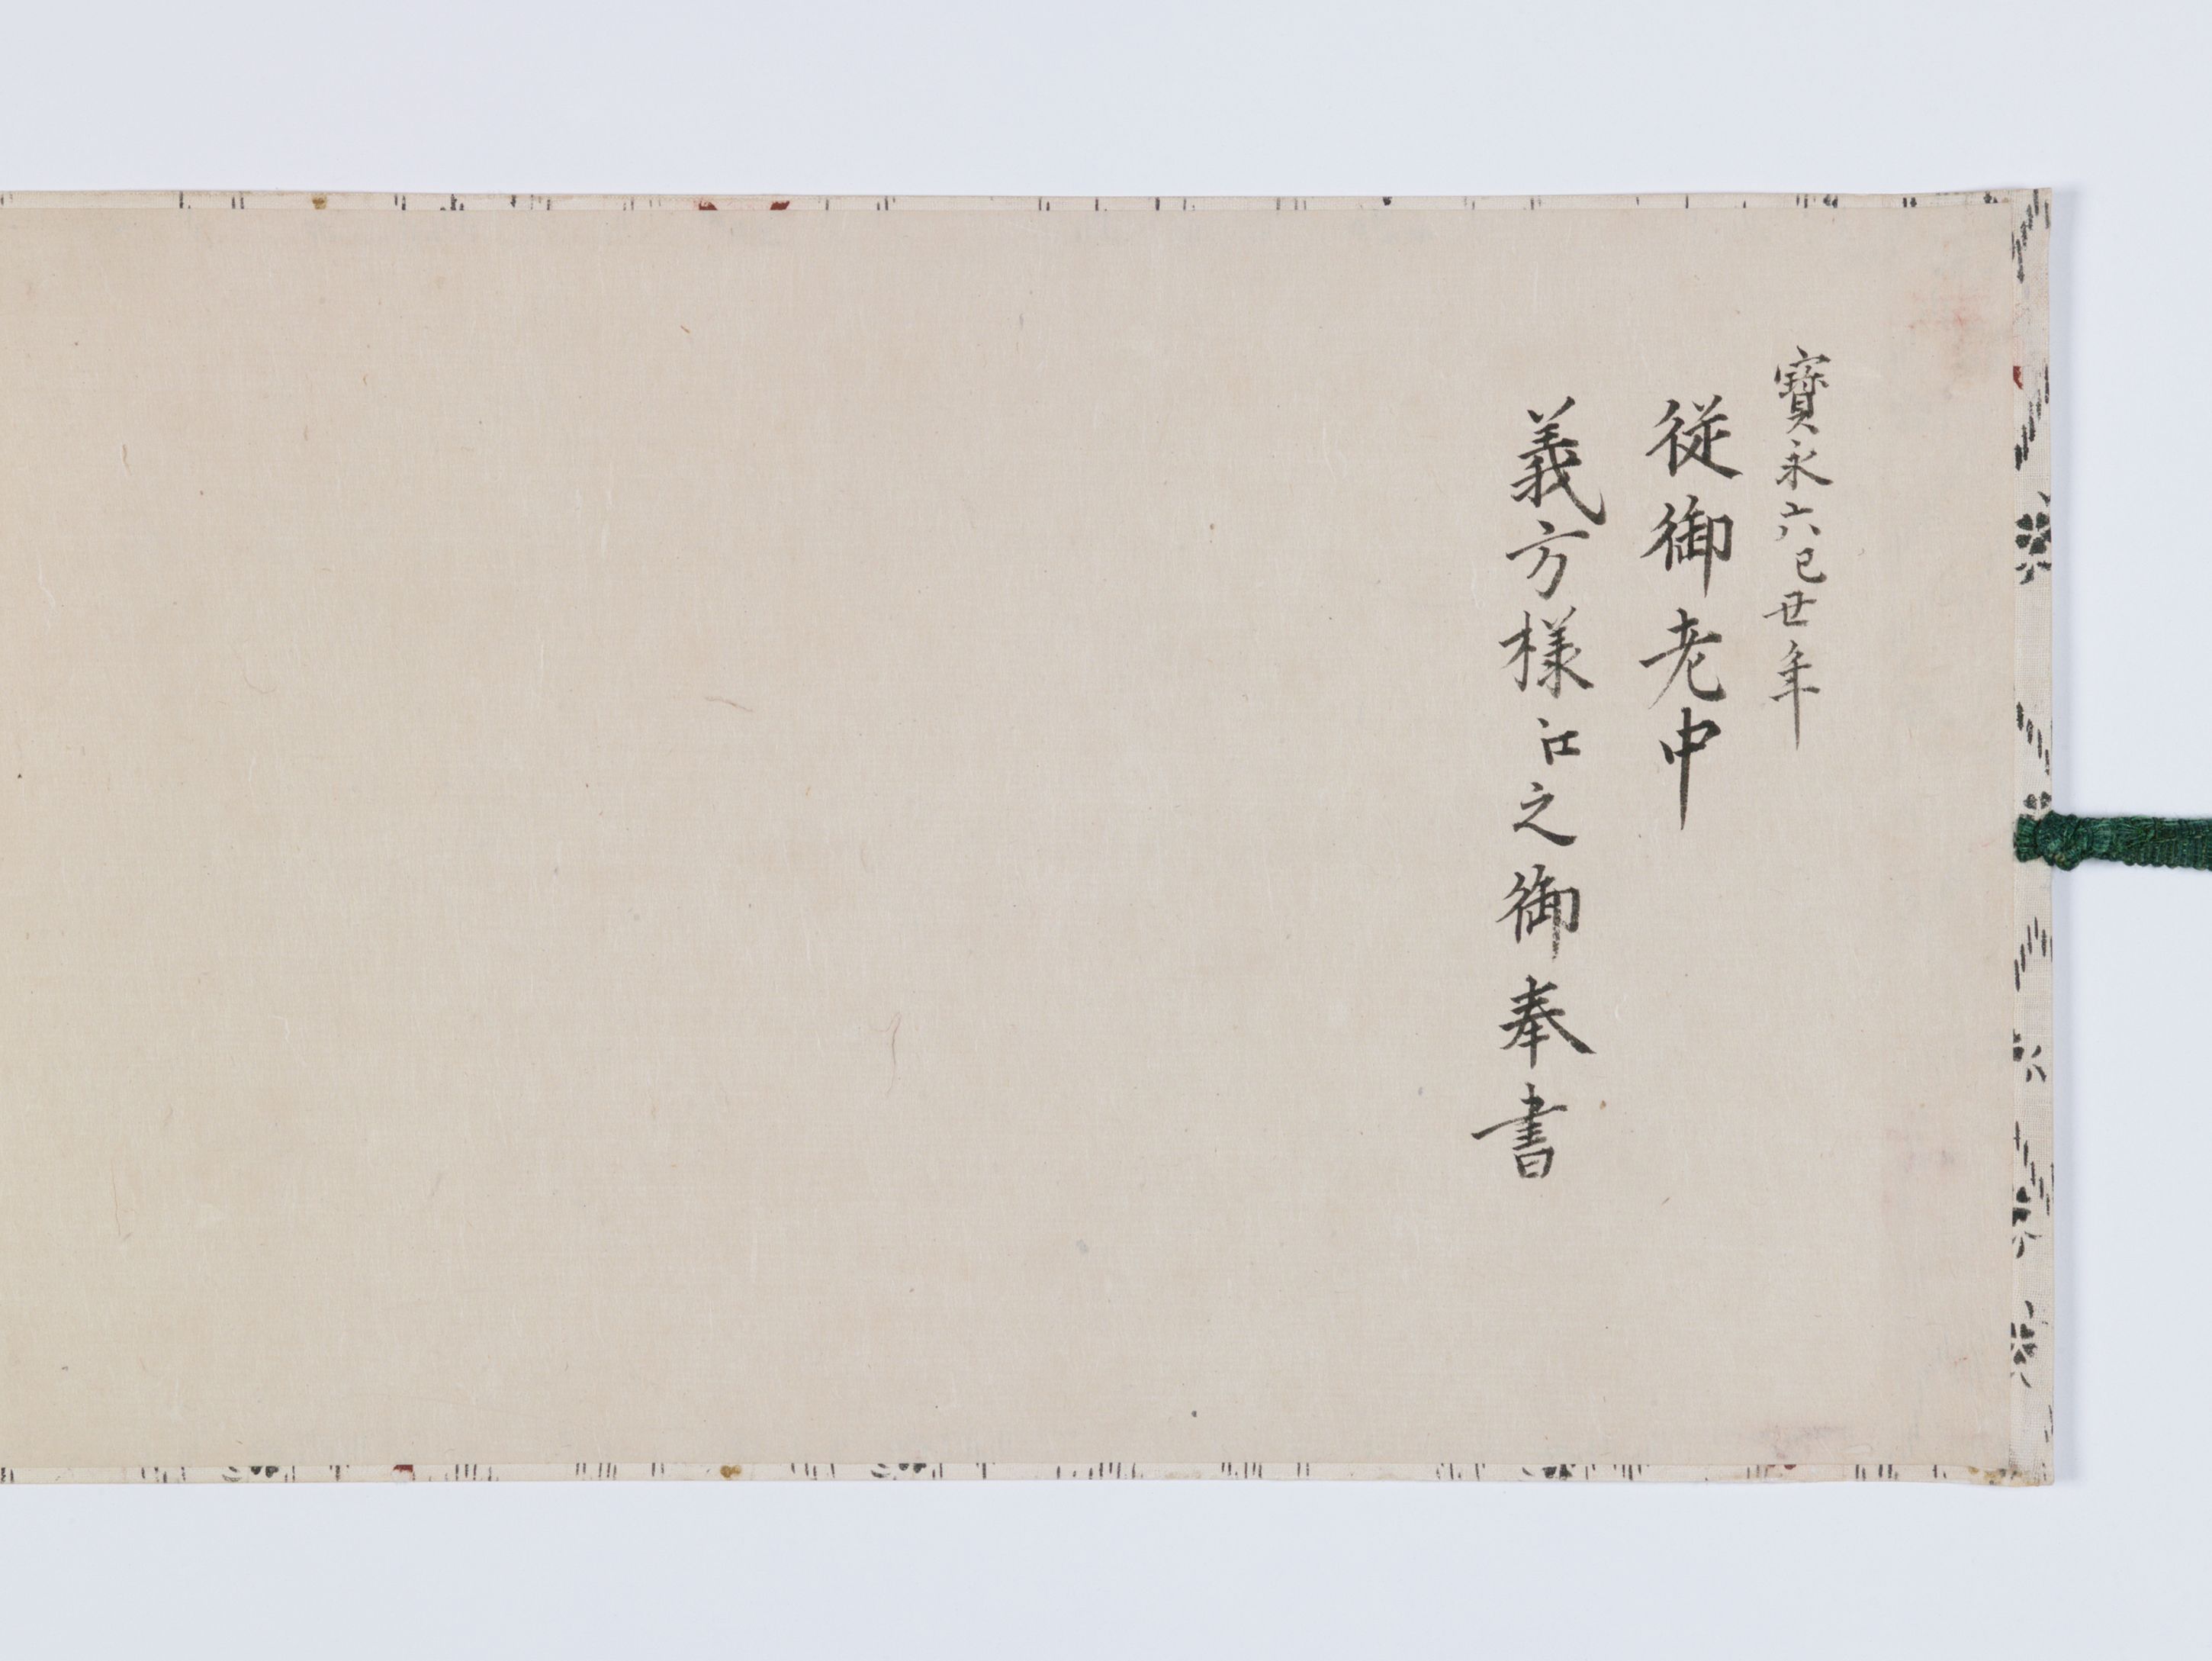 寶永六己丑年
従御老中
義方様江之御奉書